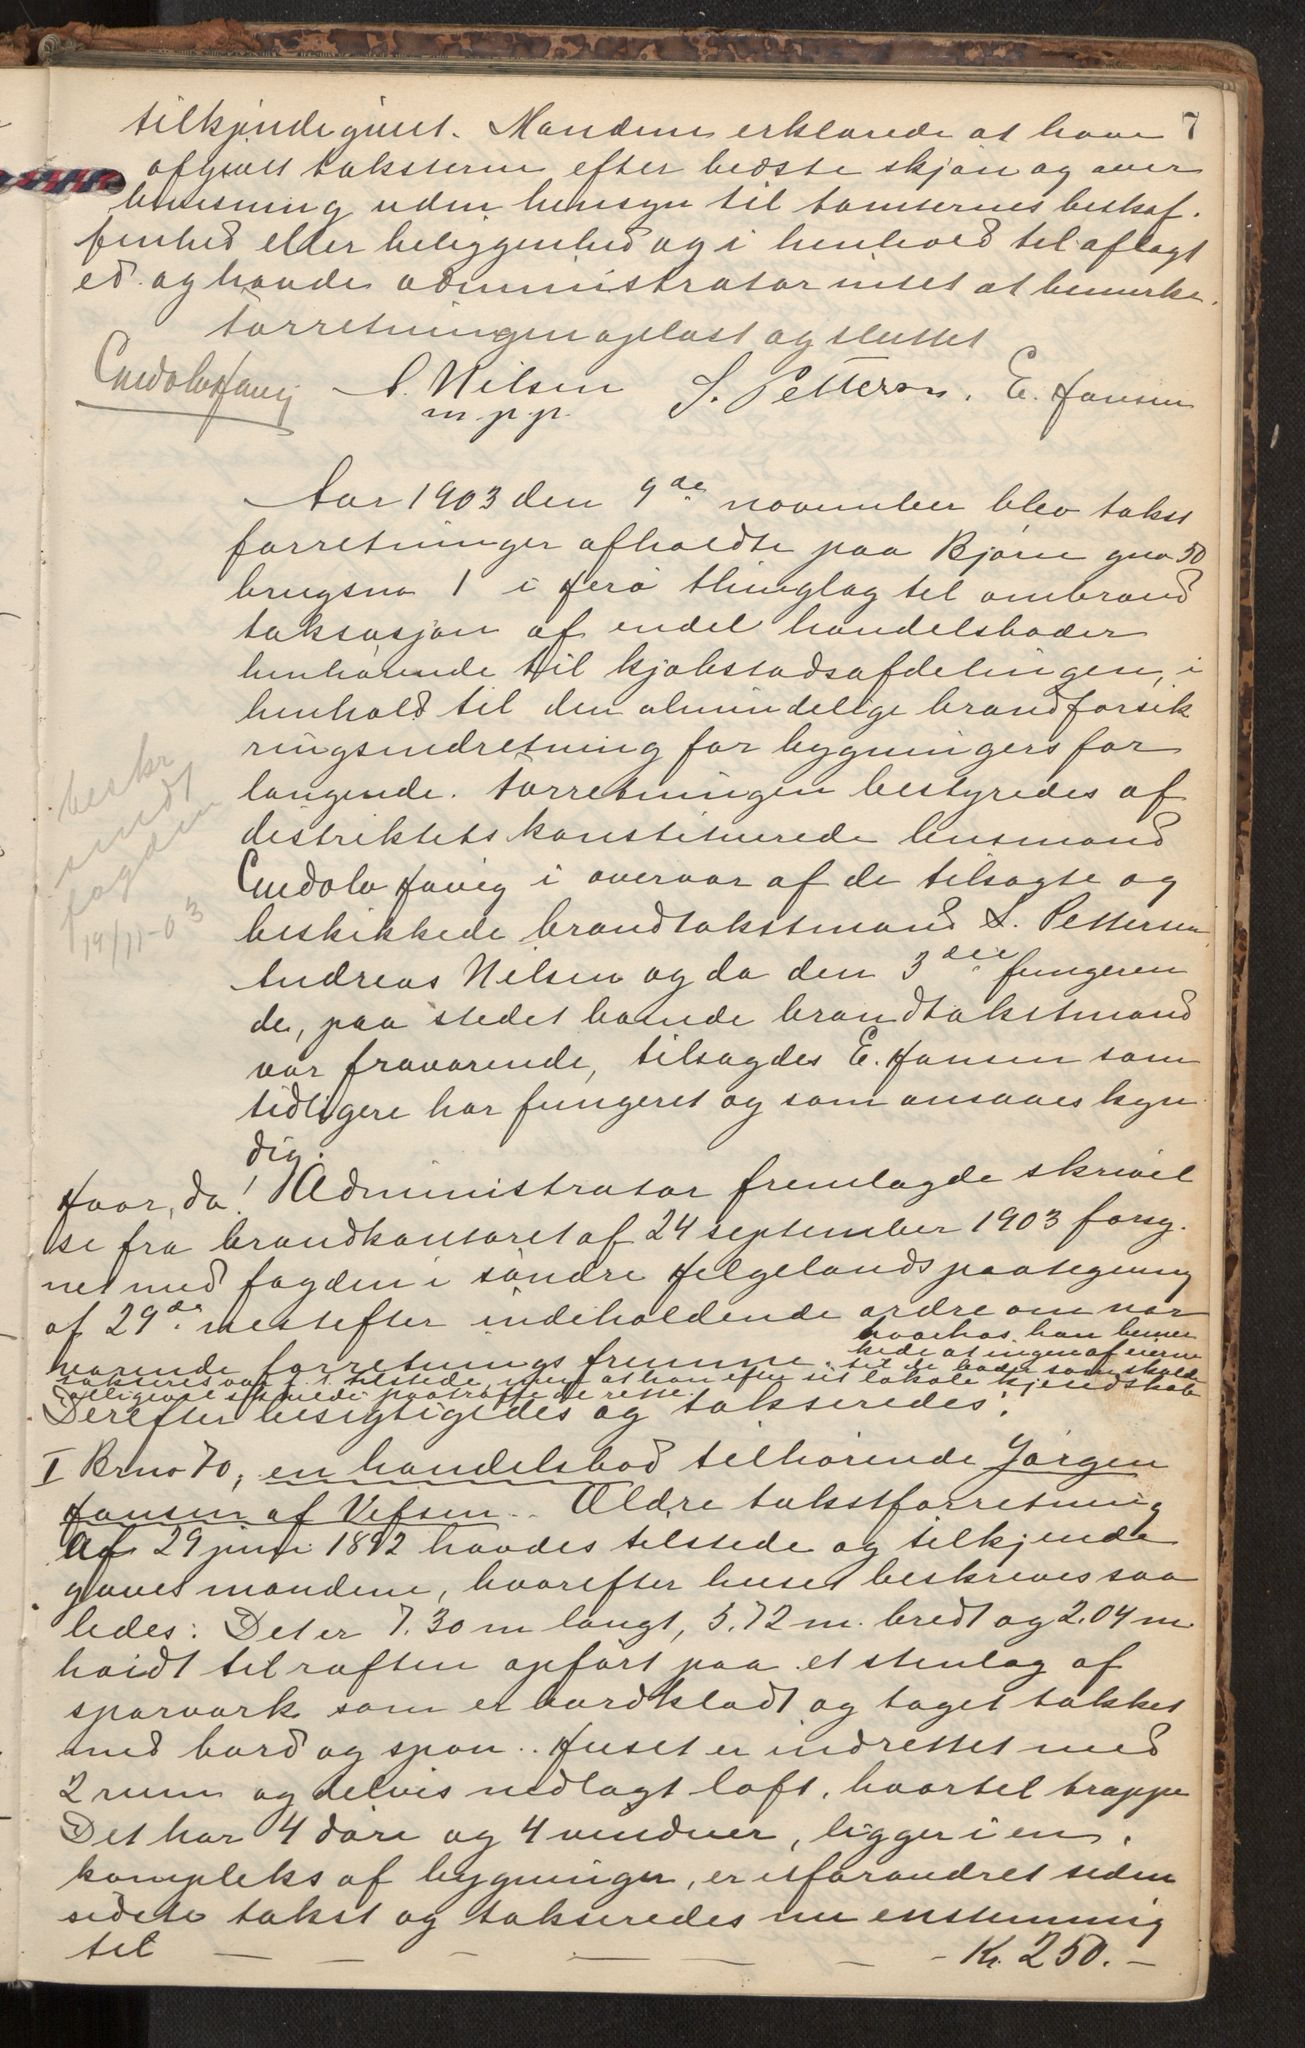 7
tilkjendegivet. Mændene erklærede at have
afgivet taksterne efter bedste skjøn og over
bevisning uden hensyn til tomternes beskaf-
fenhed eller beliggenhed og i henhold til aflagt
ed og havde administrator intet at bemerke.
Forretningen oplæst og sluttet
A. Nilsen S. Pettersen. E. Hansen
m. p. p.
Aar 1903 den 9de november blev takst
forretninger afholdte paa Bjørn gno 50
brugsno 1 i Herø thinglag til ombrand
taksasjon af endel handelsboder
henhørende til kjøbstadsafdelingen, i
henhold til den almindelige brandforsik
ringsindretning for bygningers for
langende. Forretningen bestyredes af
distriktets konstituerede lensmand
Havig i overvær af de tilsagte og
beskikkede brandtakstmænd S. Pettersen
Andreas Nilsen og da den 3die fungeren
de, paa stedet boende brandtakstmand
var fraværende, tilsagdes E. Hansen som
tidligere har fungeret og som ansaaes kyn
dig.
beskr
sendt
fogden
19/11-03
Hvor, da! Administrator fremlagde skrivel
se fra brandkontoret af 24 september 1903 forsy-
net med fogden i søndre Helgelands paategning
af 29de næstefter indeholdende ordre om nær
værende forretnings fremme.
hvorhos han bemer
kede at ingen af eierne
til de boder som skulde
takseres var tilstede, men at han efter sit lokale kjendskab
alligevel skulde paatræffe de rette.
Derefter besigtigedes og takseredes:
I Brno 70, en handelsbod tilhørende Jørgen
Hansen af Vefsen. Ældre takstforretning
Af 29 juni 1892 havdes tilstede og tilkjende
gaves mændene, hvorefter huset beskrives saa
ledes: Det er 7.30 m langt, 5.72 m. bredt og 2.04 m
høidt til raften opført paa et stenlag af
sparværk som er bordklædt og taget tækket
med bord og spon. Huset er indrettet med
2 rum og delvis nedlagt loft, hvortil trappe
Det har 4 døre og 4 vinduer, ligger i en
kompleks af bygninger, er uforandret siden
sidste takst og takseredes nu enstemmig
til — — — — — Kr. 250. —